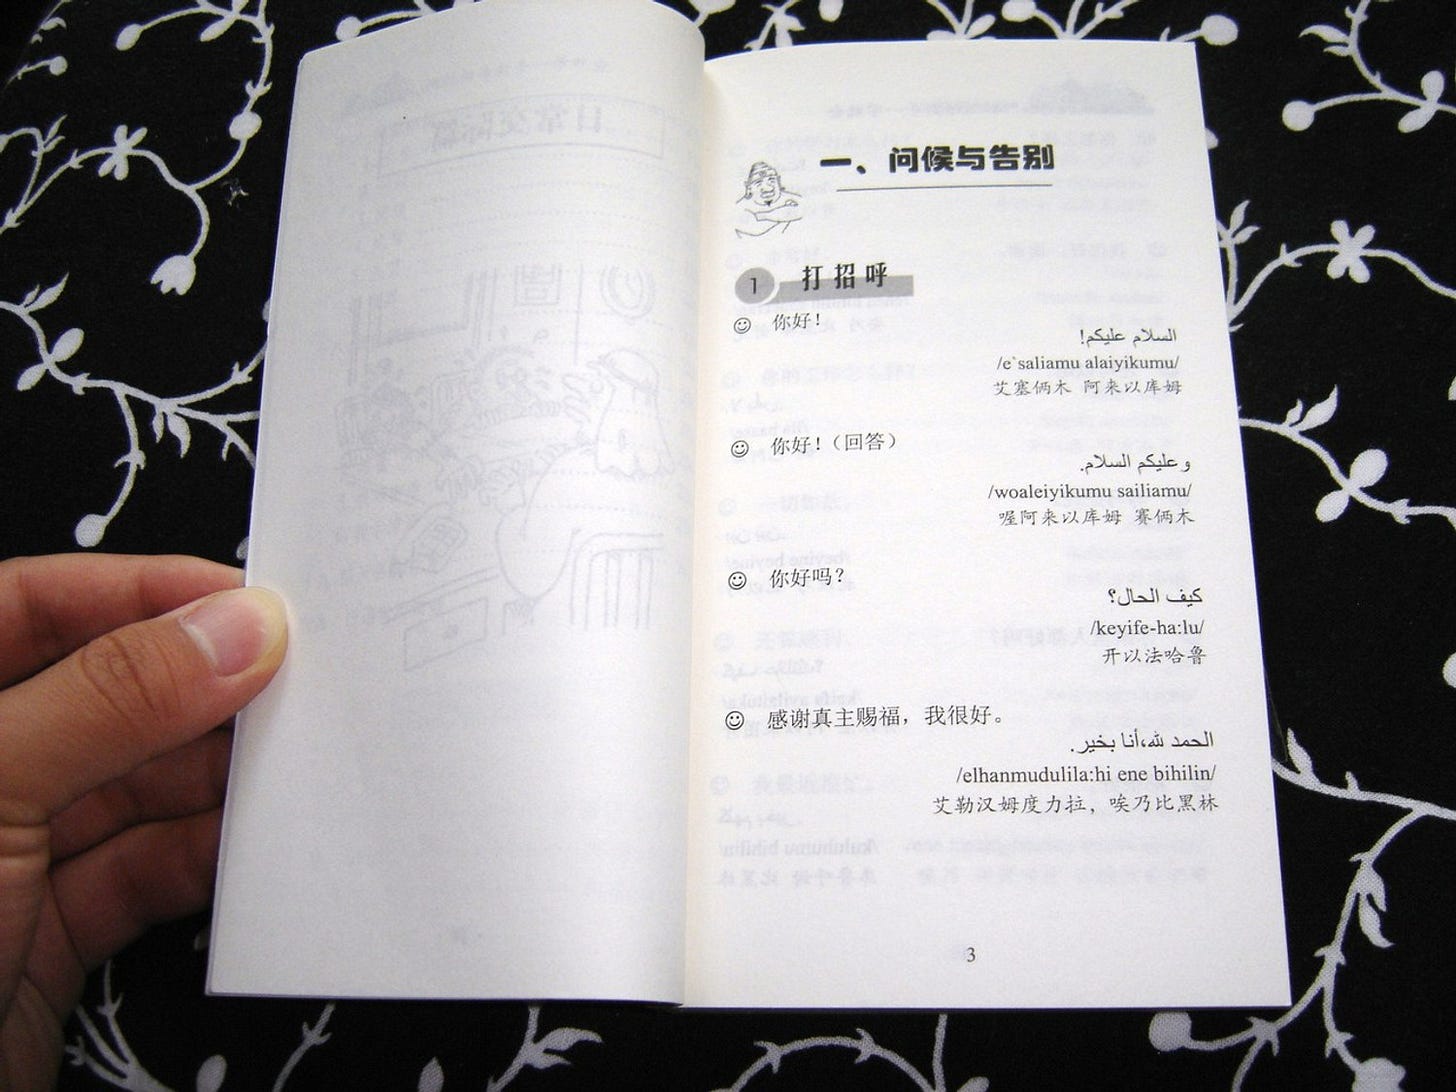 一、问候与告别
1 打招呼
你好！
السلام عليكم!
/e`saliamu alaiyikumu/
艾塞俩木 阿来以库姆
你好！（回答）
وعليكم السلام.
/woaleiyikumu sailiamu/
喔阿来以库姆 赛俩木
你好吗？
كيف الحال؟
/keyife-ha:lu/
开以法哈鲁
感谢真主赐福，我很好。
الحمد لله،أنا بخير.
/elhanmudulila:hi ene bihilin/
艾勒汉姆度力拉，唉乃比黑林
3